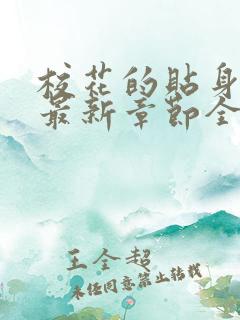 校花的贴身
最新章节全
王全超
未经同意禁止转载